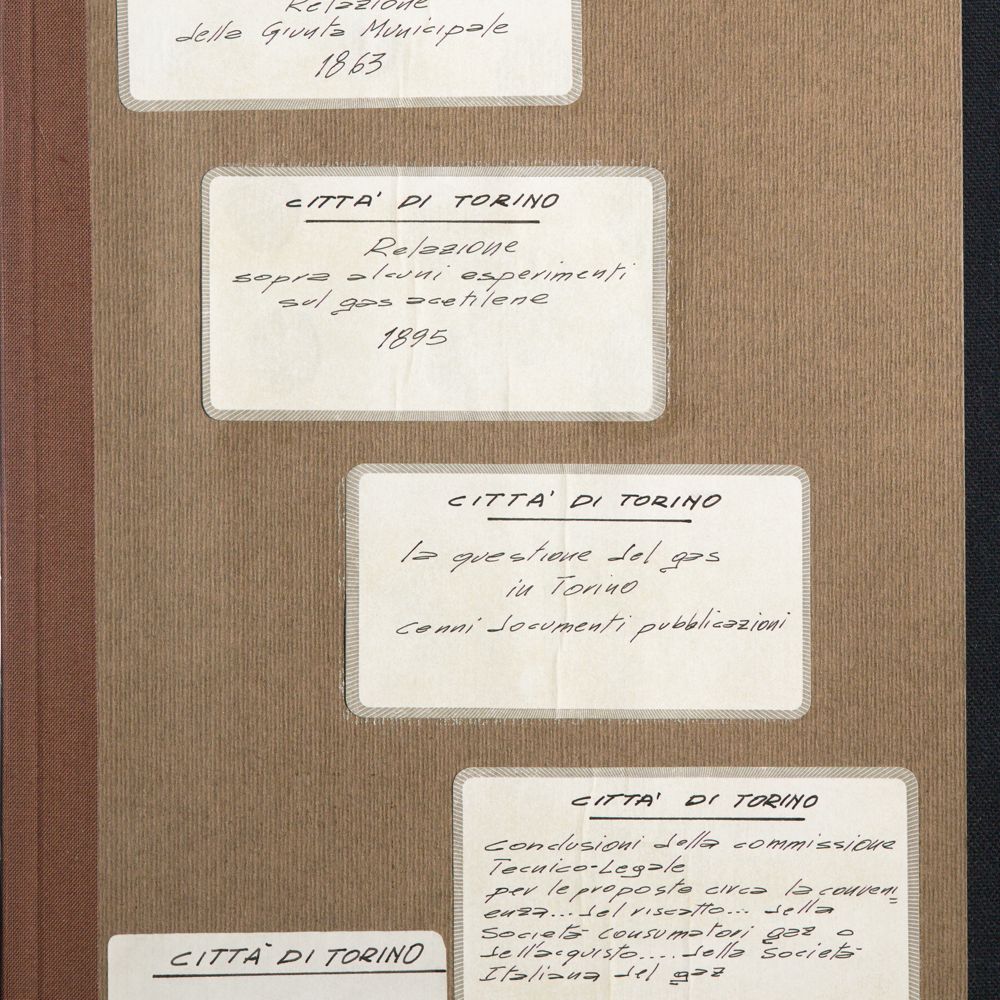 Relazione
della Giunta Municipale
1863
CITTA' DI TORINO
Relazione
sopra alcuni esperimenti
sul gas acetilene
1895
CITTA' DI TORINO
la questione del gas
in Torino
cenni documenti pubblicazioni
CITTA' DI TORINO
conclusioni della commissione
Tecnico-Legale
per le proposte circa la conveni
enza... del riscatto... della
Società consumatori gaz o
dell'acquisto.... della Società
Italiana del gaz
CITTÀ DI TORINO